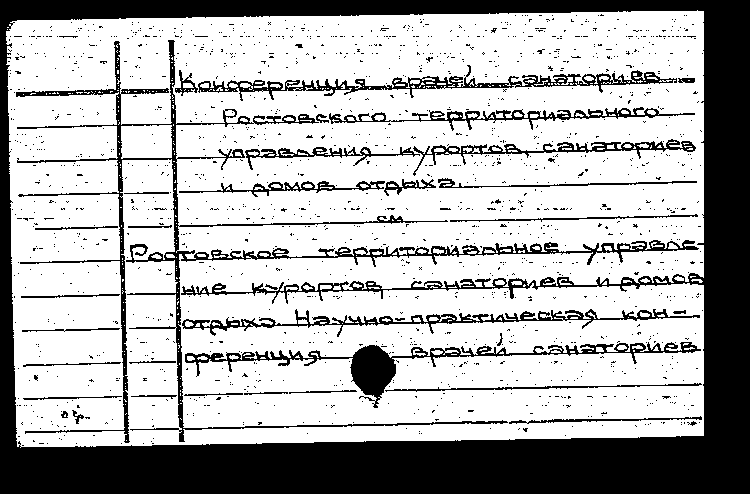 Конференция врачей санаториев
Ростовского территориального
управления курортов, санаториев
и домов отдыха.
см.
Ростовское территориальное управле-
ние курортов, санаториев и домов
отдыха. Научно-практическая кон-
ференция врачей санаториев